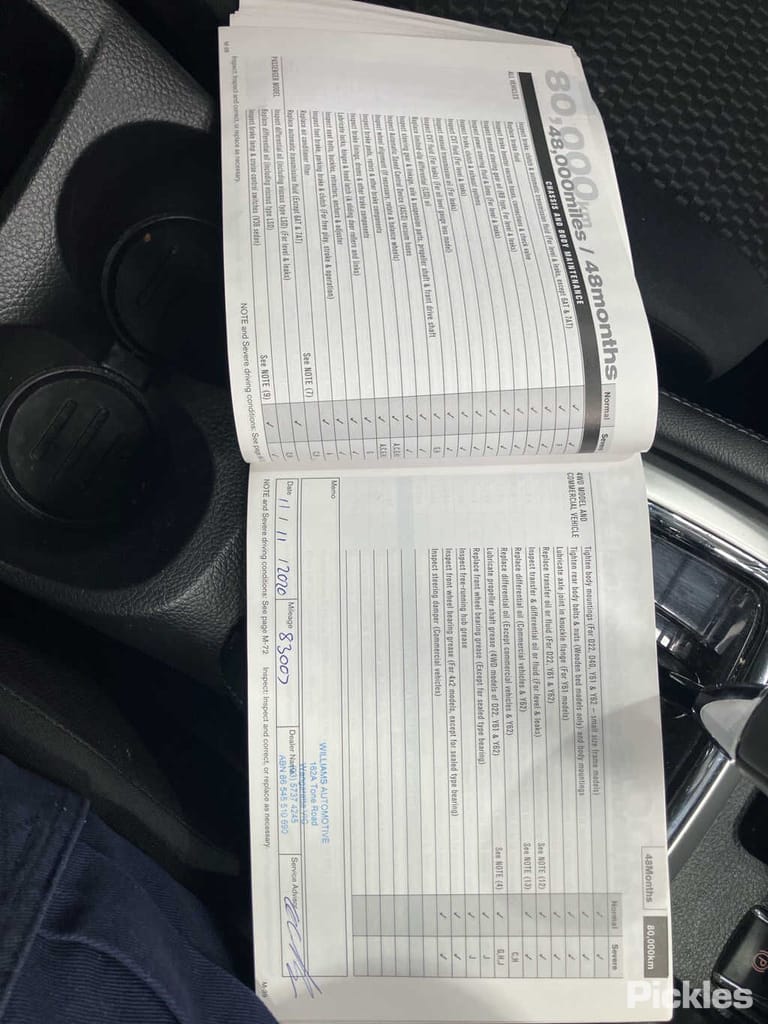 80,000km
48,000miles / 48months
CHASSIS AND BODY MAINTENANCE
Normal Severe
ALL VEHICLES
Inspect brake, clutch & automatic transmission fluid (For level & leaks, except 6AT & 7AT)
Replace brake fluid
Inspect brake booster vacuum hoses, connections & check valve
Inspect power steering fluid & lines (For level & leaks)
Inspect brake, clutch & exhaust systems
Inspect CVT fluid (For level & leaks)
Inspect manual transmission oil (For leaks)
Inspect CVT fluid (For leaks) (For oil level gauge less model)
Replace Limited-slip differential (LSD) oil
Inspect steering gear & linkage, axle & suspension parts, propeller shaft & front drive shaft
Inspect Automatic Speed Control Device (ASCD) vacuum hoses
Inspect wheel alignment (If necessary, rotate & balance wheels)
Inspect brake pads, rotors & other brake components
Inspect brake linings, drums & other brake components
Lubricate locks, hinges & hood latch (& sliding door rollers and links)
Inspect seat belts, buckles, retractors, anchors & adjuster
Inspect foot brake, parking brake & clutch (For free play, stroke & operation)
Replace air conditioner filter See NOTE (7)
Replace automatic transmission fluid (Except 6AT & 7AT)
PASSENGER MODEL
Inspect differential oil (Including viscous type LSD) (For level & leaks)
Replace differential oil (Including viscous type LSD) See NOTE (9)
Inspect brake lamp & cruise control switches (V36 sedan)
NOTE and Severe driving conditions: See page
Inspect: Inspect and correct, or replace as necessary.
M-88
48Months 80,000km
Normal Severe
4WD MODEL AND
COMMERCIAL VEHICLE
Tighten body mountings (For D22, D40, Y61 & Y62 – small size frame models)
Tighten rear body bolts & nuts (Wooden bed models only) and body mountings
Lubricate axle joint in knuckle flange (For Y61 models)
Replace transfer oil or fluid (For D22, Y61 & Y62) See NOTE (12)
Inspect transfer & differential oil or fluid (For level & leaks) See NOTE (13)
Replace differential oil (Commercial vehicles & Y62) C,H
Replace differential oil (Except commercial vehicles & Y62) See NOTE (4) G,H,J
Lubricate propeller shaft grease (4WD models of D22, Y61 & Y62) J
Replace front wheel bearing grease (Except for sealed type bearing) J
Inspect free-running hub grease
Inspect front wheel bearing grease (For 4x2 models, except for sealed type bearing)
Inspect steering damper (Commercial vehicles)
Memo
WILLIAMS AUTOMOTIVE
162A Tone Road
Wangaratta VIC
(03) 5737 4245
ABN 86 545 510 690
Date 11 / 11 / 2020 Mileage 83007 Dealer Name Service Advisor
NOTE and Severe driving conditions: See page M-72 Inspect: Inspect and correct, or replace as necessary.
M-89
Pickles